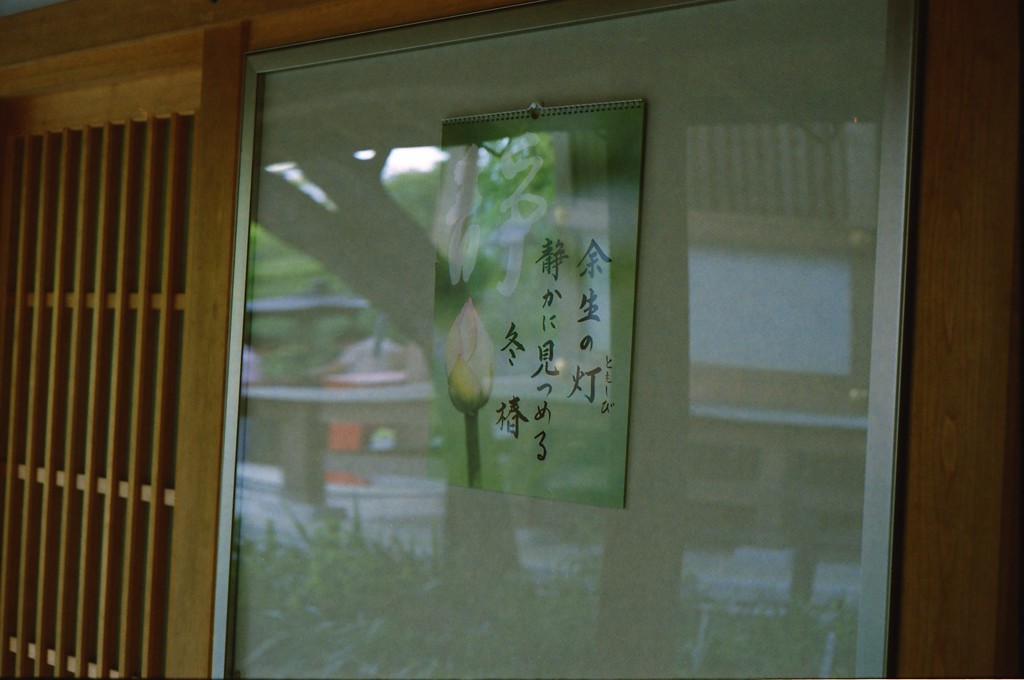 余生の灯
ともしび
静かに見つめる
冬椿